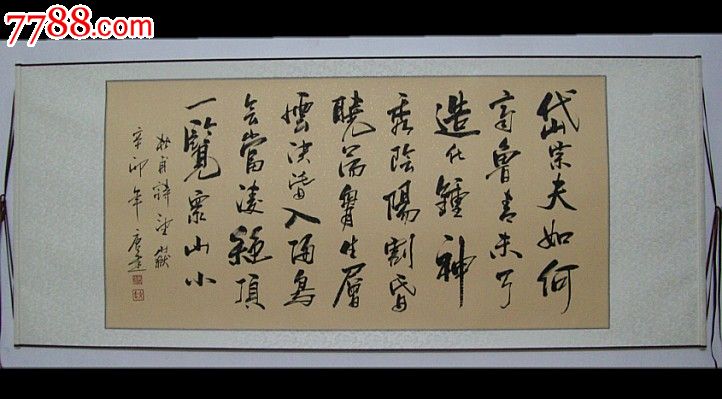 7788.com
岱宗夫如何
齊魯青未了
造化鍾神
秀陰陽割昏
曉盪胸生層
雲決眥入歸鳥
會當凌絕頂
一覽眾山小
杜甫詩望嶽
辛卯年